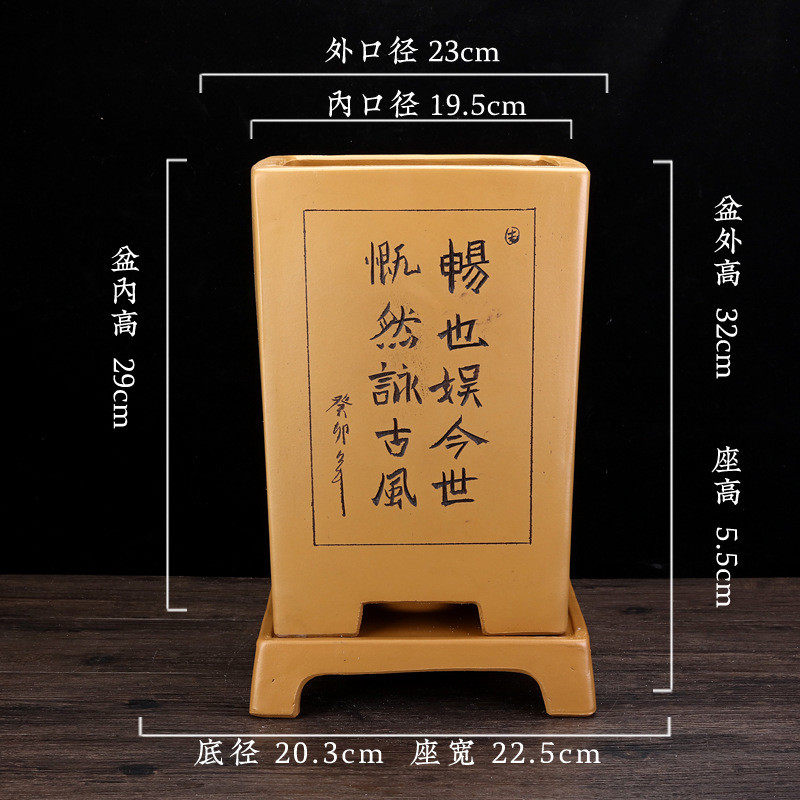 外口径 23cm
內口径 19.5cm
盆內高 29cm
盆外高 32cm
座高 5.5cm
暢也娱今世
慨然詠古風
癸卯年
底径 20.3cm 座宽 22.5cm